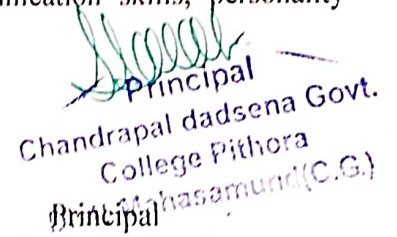 skills, personality
Principal
Chandrapal dadsena Govt.
College Pithora
Mahasamund(C.G.)
Principal